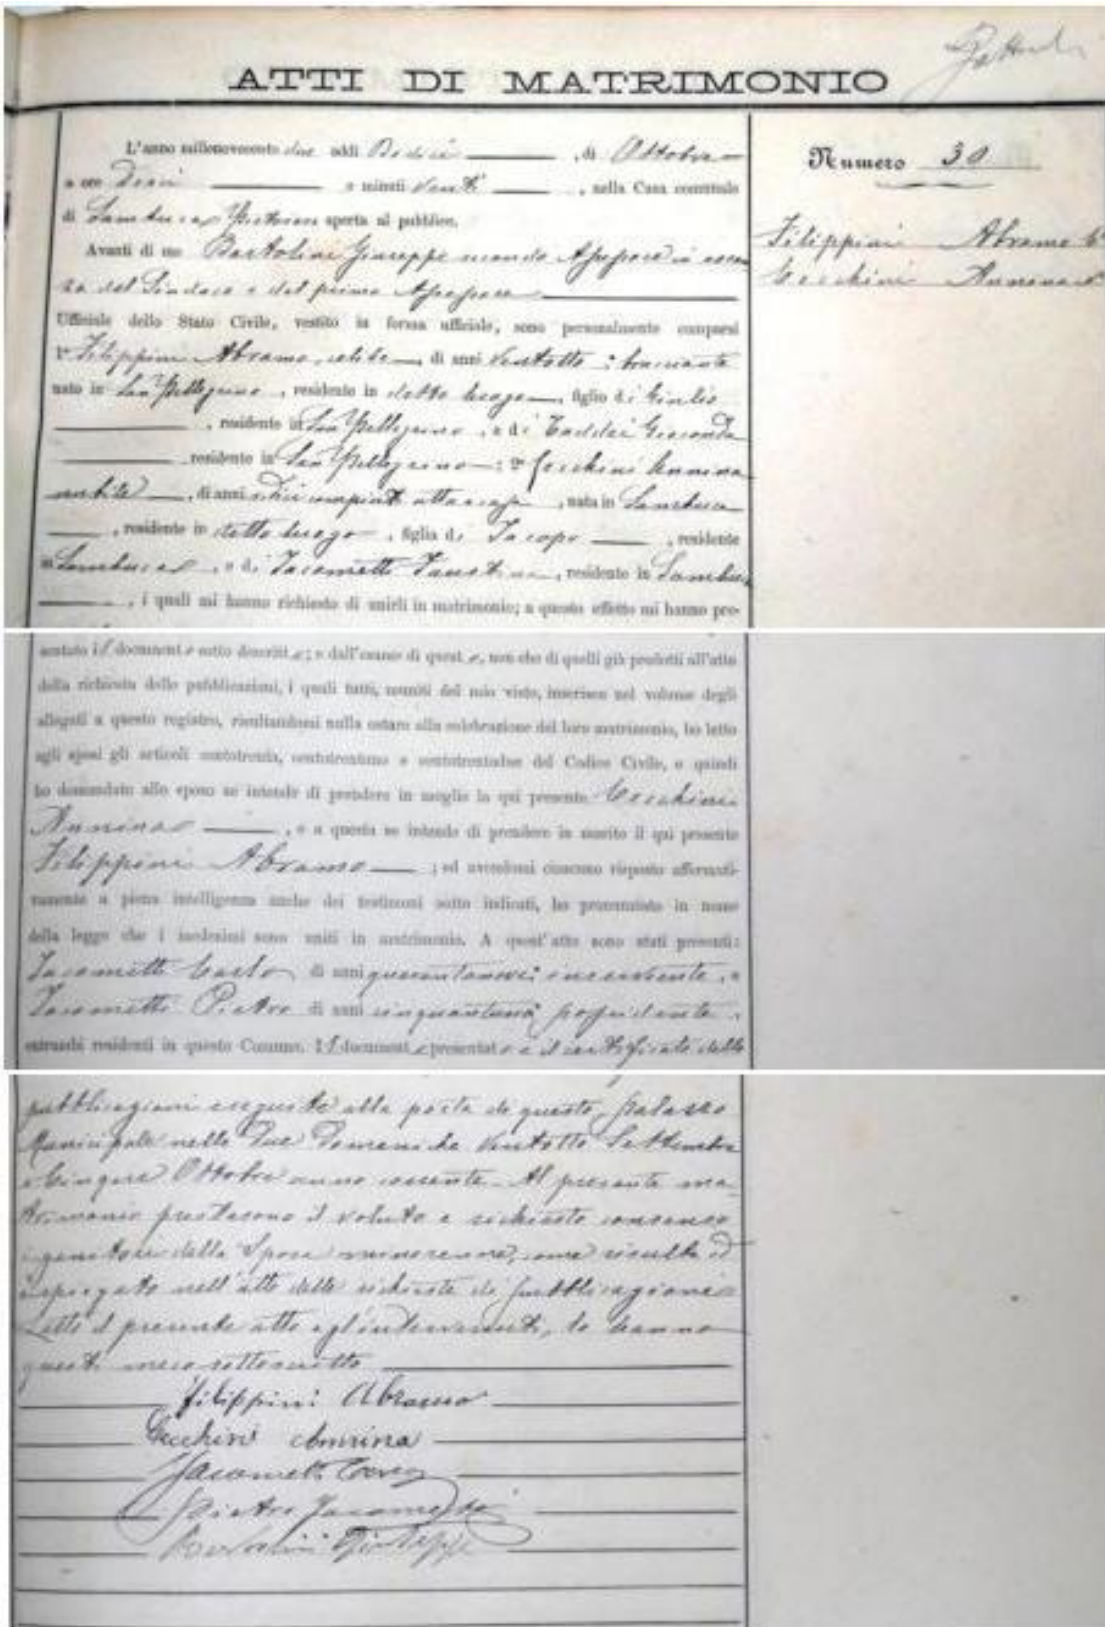 ATTI DI MATRIMONIO
L'anno millenovecento due addì Dodici , di Ottobre
a ore Dieci e minuti Venti , nella Casa comunale
di Sambuca Pistoiese aperta al pubblico.
Avanti di me Bartolini Giuseppe secondo Assessore in assen
za del Sindaco e del primo Assessore
Ufficiale dello Stato Civile, vestito in forma ufficiale, sono personalmente comparsi
1° Filippini Abramo, celibe, di anni Ventotto : bracciante
nato in San Pellegrino , residente in detto luogo , figlio di Giulio
, residente in San Pellegrino , e di Taddei Gioconda
residente in San Pellegrino : 2° Cecchini Annina
nubile , di anni sedici compiuti atta a casa , nata in Sambuca
, residente in detto luogo , figlia di Jacopo , residente
in Sambuca , e di Jacometti Faustina , residente in Sambuca
, i quali mi hanno richiesto di unirli in matrimonio; a questo effetto mi hanno pre-
Numero 30
Filippini Abramo
Cecchini Annina
sentato il documento sotto descritto; e dall'esame di questo, non che di quelli già prodotti all'atto
della richiesta delle pubblicazioni, i quali tutti, muniti del mio visto, inserisco nel volume degli
allegati a questo registro, risultandomi nulla ostare alla celebrazione del loro matrimonio, ho letto
agli sposi gli articoli centotrenta, centotrentuno e centotrentadue del Codice Civile, e quindi
ho domandato allo sposo se intende di prendere in moglie la qui presente Cecchini
Annina , e a questa se intende di prendere in marito il qui presente
Filippini Abramo ; ed avendomi ciascuno risposto affermati-
vamente a piena intelligenza anche dei testimoni sotto indicati, ho pronunziato in nome
della legge che i medesimi sono uniti in matrimonio. A quest'atto sono stati presenti:
Jacometti Carlo di anni quarantanove: inserviente , e
Jacometti Pietro di anni cinquantuno possidente ,
entrambi residenti in questo Comune. Il documento presentato è il certificato delle
pubblicazioni eseguite alla porta di questo Palazzo
Municipale nelle due Domeniche Ventotto Settembre
e Cinque Ottobre anno corrente. Al presente ma
trimonio prestarono il voluto e richiesto consenso
i genitori della Sposa minorenne, come risulta ed
è spiegato nell'atto della richiesta di pubblicazioni
Letto il presente atto agl'intervenuti, lo hanno
questi meco sottoscritto
Filippini Abramo
Cecchini Annina
Jacometti Carlo
Pietro Jacometti
Bartolini Giuseppe